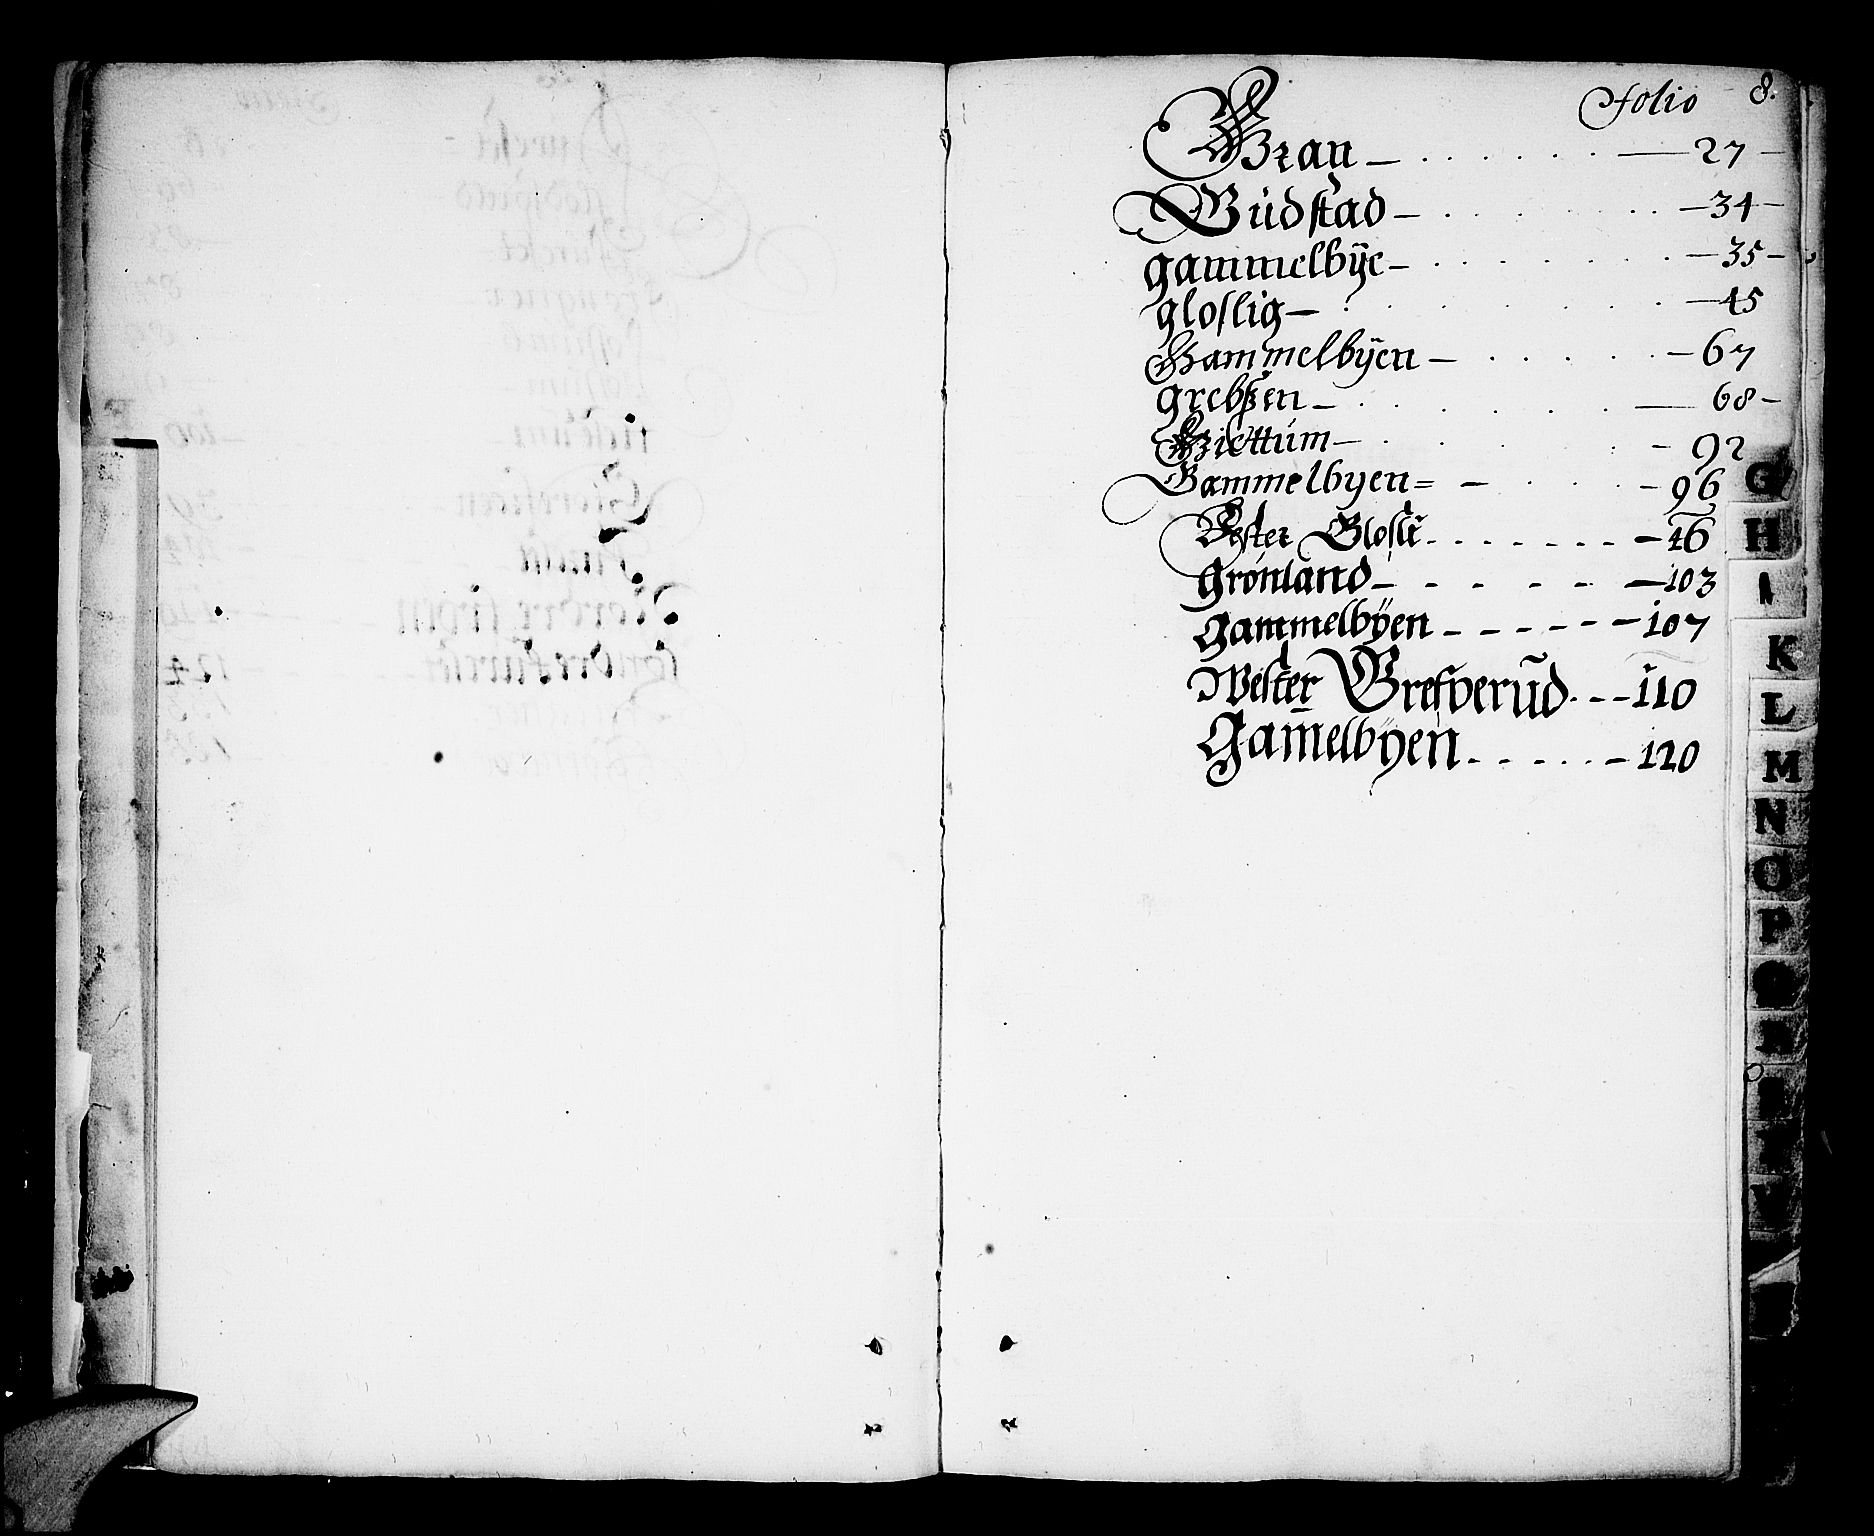 folio 8.
Gran — . . . . . . — 27 —
Gudstad — . . . . . . — 34 —
gammelbÿe — . . . . . . — 35 —
gloslig — . . . . . — 45
Gammelbÿen — . . . . — 67
grebßen — . . . . — 68 —
Giettum — . . . . — 92
Gammelbyen = — . . . — 96
Vester Glosli . - - - - - - — 46
Grønland — - - - - — 103
Gammelbÿen - - - - - — 107
Wester Grefverud . - - - 110
Gam̄elbÿen . - - - . - 120
G
H
I
K
L
M
N
O
P
Q